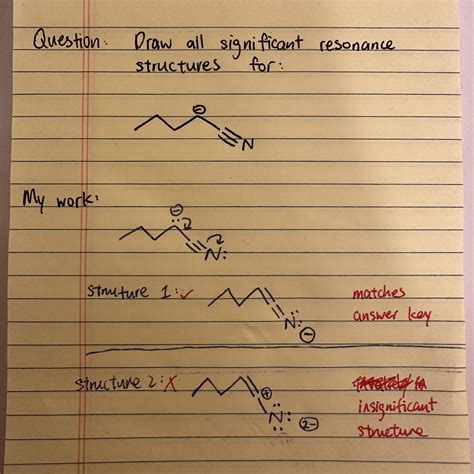 Question: Draw all significant resonance
structures for:
⊖
N
My work:
⊖
N:
structure 1: ✓
matches
answer key
N:
⊖
structure 2: X
⊕
insignificant
structure
:N:
2-